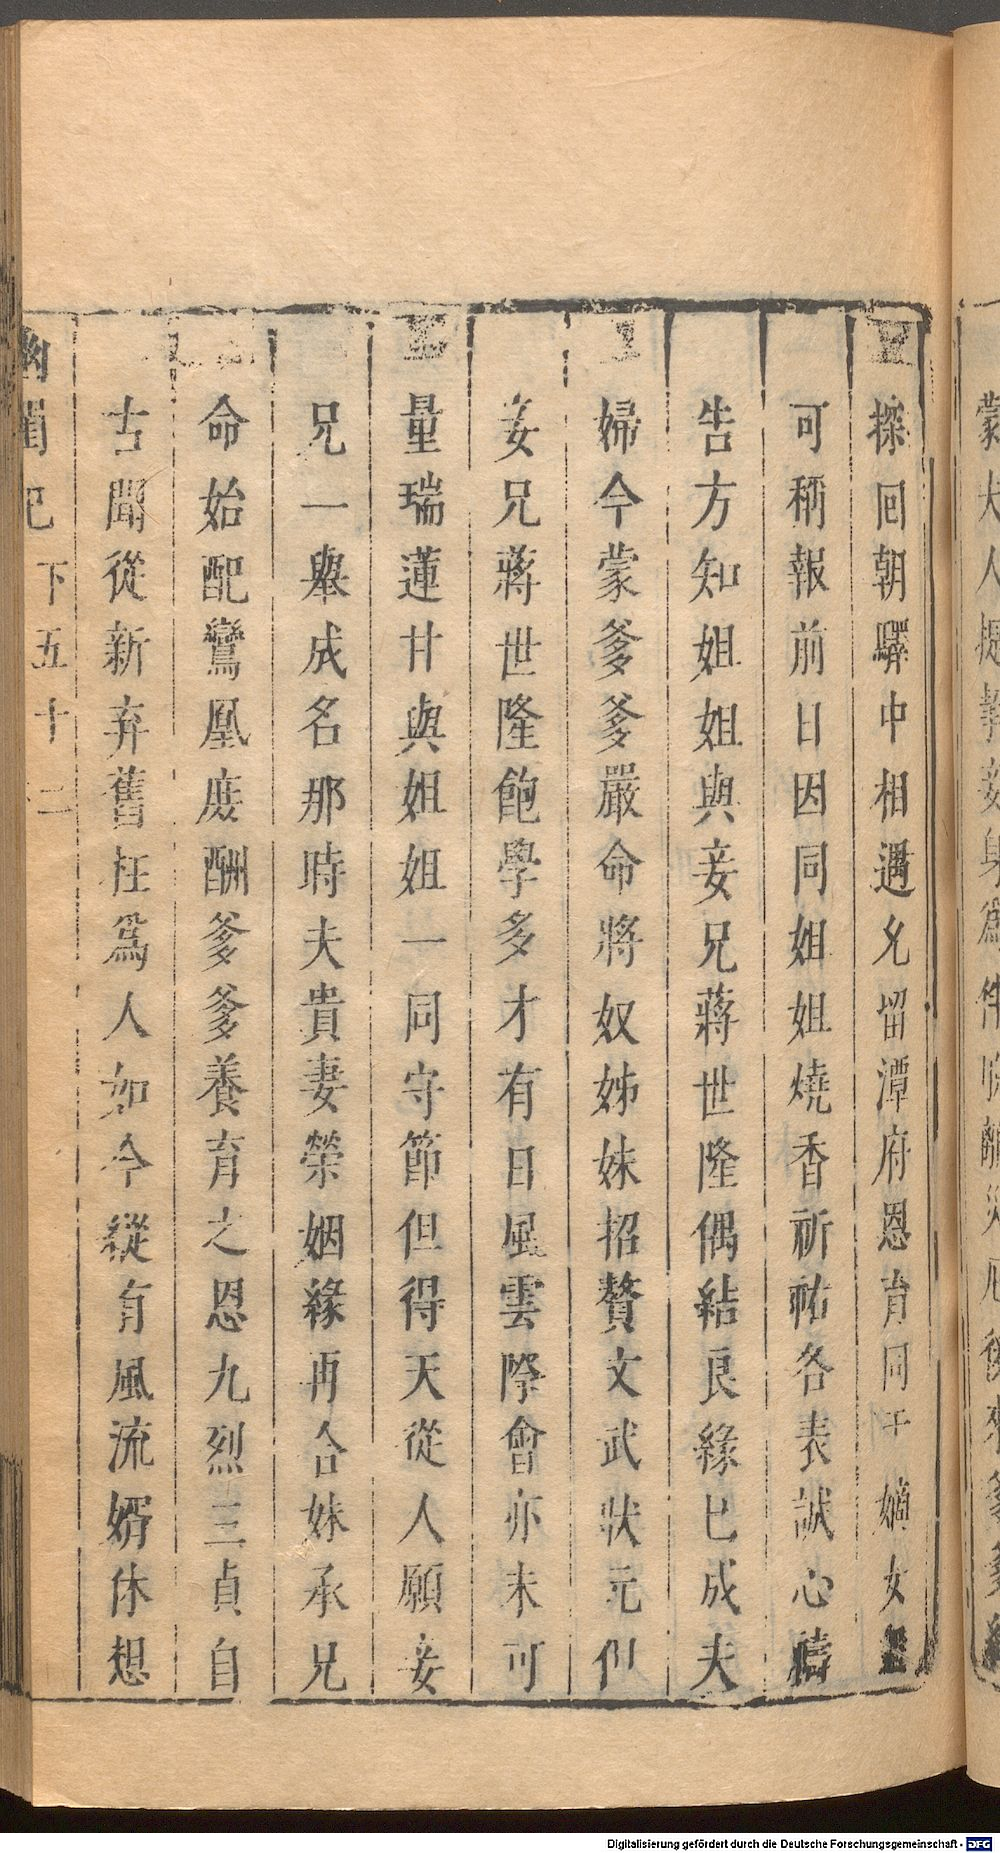 探回朝驛中相遇允留潭府恩育同于嫡女
可稱報前日因同姐姐燒香祈祐各表誠心禱
告方知姐姐與妾兄蔣世隆偶結良緣已成夫
婦今蒙爹爹嚴命將奴姊妹招贅文武狀元但
妾兄蔣世隆飽學多才有日風雲際會亦未可
量瑞蓮甘與姐姐一同守節但得天從人願妾
兄一舉成名那時夫貴妻榮姻緣再合妹承兄
命始配鸞凰庶酬爹爹養育之恩九烈三貞自
古聞從新弃舊枉爲人如今縱有風流婿休想
幽閨記 下 五十二
Digitalisierung gefördert durch die Deutsche Forschungsgemeinschaft - DFG